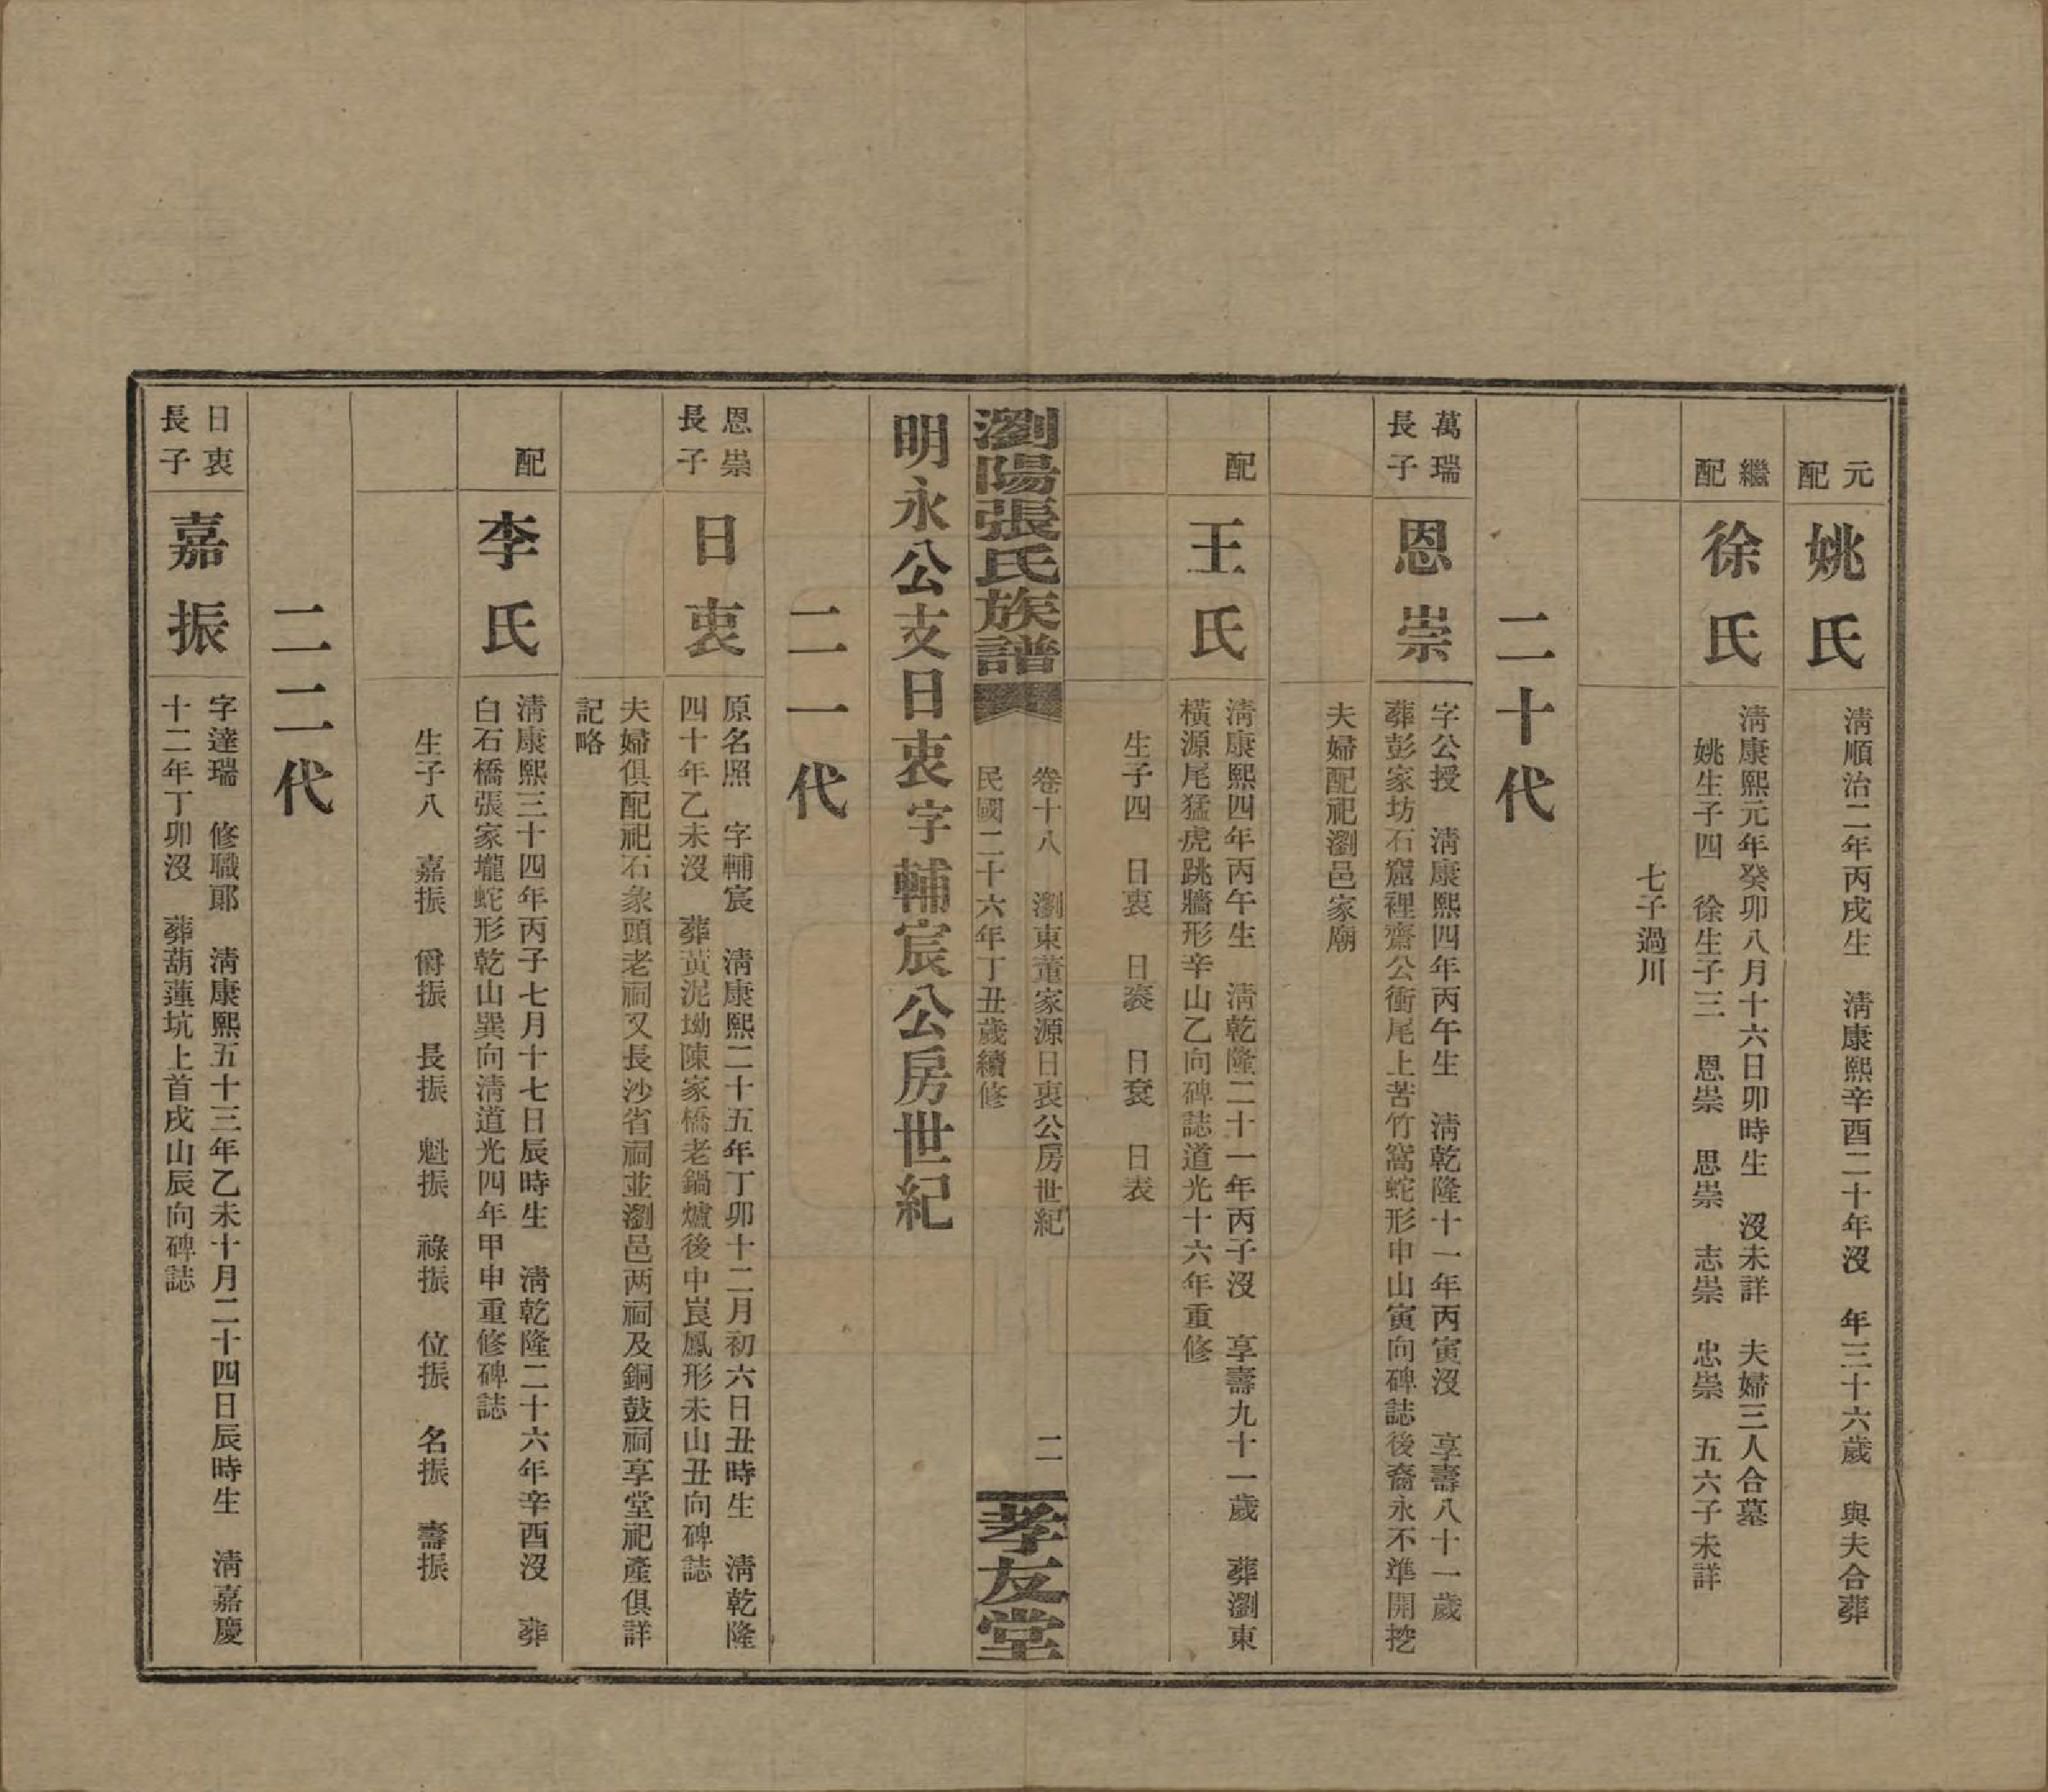 元配
姚氏
清順治二年丙戌生　清康熙辛酉二十年沒　年三十六歲　與夫合葬
繼配
徐氏
清康熙元年癸卯八月十六日卯時生　沒未詳　夫婦三人合墓
姚生子四　徐生子三　恩崇　思崇　志崇　忠崇　五六子未詳
七子過川
二十代
萬瑞
長子
恩崇
字公授　清康熙四年丙午生　清乾隆十一年丙寅沒　享壽八十一歲
葬彭家坊石窟裡齋公衝尾上苦竹窩蛇形申山寅向碑誌後裔永不準開挖
夫婦配祀瀏邑家廟
配
王氏
清康熙四年丙午生　清乾隆二十一年丙子沒　享壽九十一歲　葬瀏東
橫源尾猛虎跳牆形辛山乙向碑誌道光十六年重修
生子四　日衷　日袞　日袤　日表
瀏陽張氏族譜
卷十八　瀏東董家源日衷公房世紀
民國二十六年丁丑歲續修
二
孝友堂
明永公支日衷字輔宸公房世紀
二一代
恩崇
長子
日衷
原名照　字輔宸　清康熙二十五年丁卯十二月初六日丑時生　清乾隆
四十年乙未沒　葬黃泥坳陳家橋老鍋爐後中崀鳳形未山丑向碑誌
夫婦俱配祀石象頭老祠又長沙省祠並瀏邑两祠及銅鼓祠享堂祀產俱詳
記略
配
李氏
清康熙三十四年丙子七月十七日辰時生　清乾隆二十六年辛酉沒　葬
白石橋張家壠蛇形乾山巽向清道光四年甲申重修碑誌
生子八　嘉振　爵振　長振　魁振　祿振　位振　名振　壽振
二二代
日衷
長子
嘉振
字達瑞　修職郎　清康熙五十三年乙未十月二十四日辰時生　清嘉慶
十二年丁卯沒　葬葫蓮坑上首戌山辰向碑誌